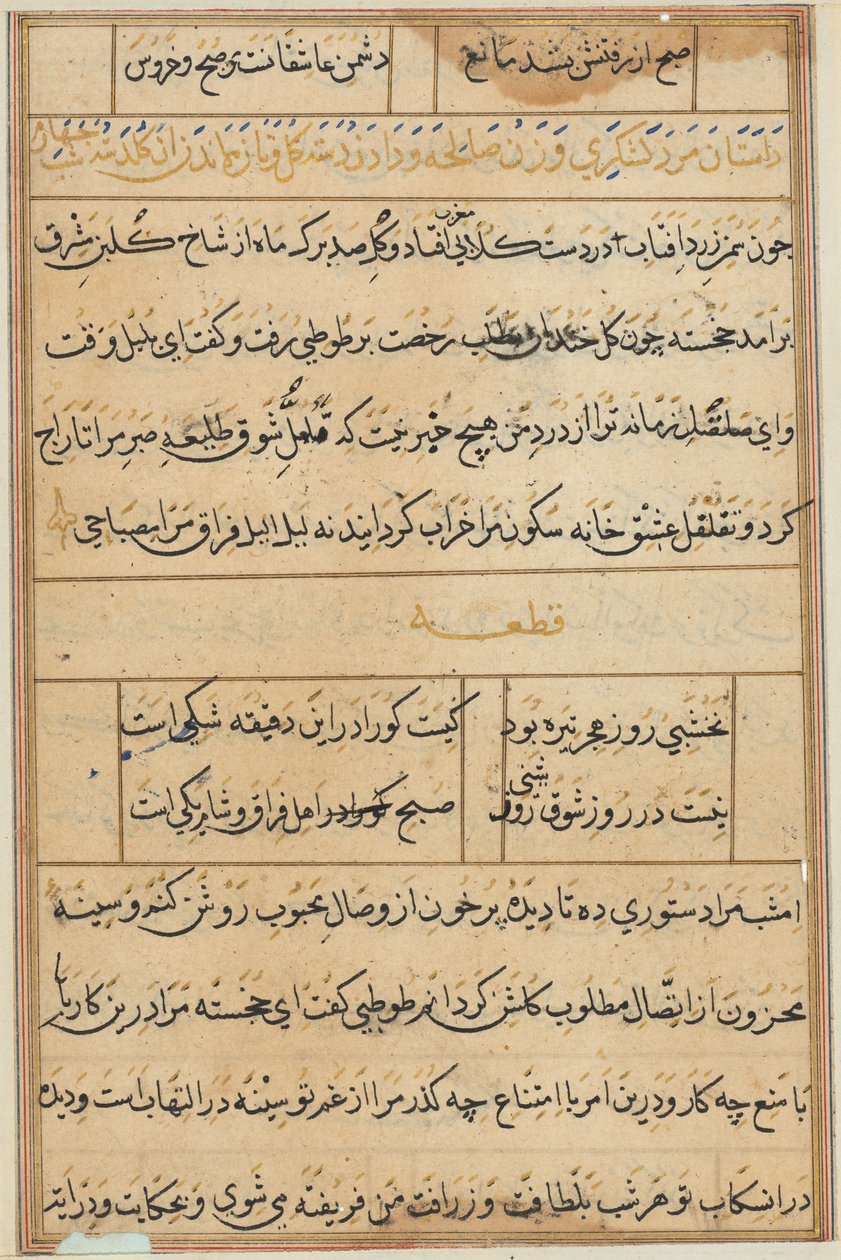 صبح از رفتنش بشد مانع دشمن عاشقانست صبح و خروس
داستان مرد لشکری و زن صالحه و دادن دسته کل و باز نماندن ان کلدسته
چون سمن زرد افتاب در دست کلابی مغرب افتاد و کل صد برک ماه از شاخ کلبن مشرق
برامد خجسته چون کل خندان بطلب رخصت بر طوطی رفت و کفت ای بلبل وقت
و ای صلصل زمانه ترا از درد من هیچ خبر نیست که شوق طلیعه صبر مرا تاراج
کرد و تقلقل عشق خانه سکون مرا خراب کردانید نه لیل الیل فراق مرا مصباحی
قطعه
نخشبی روز هجر تیره بود کیست کورا در این دقیقه شکی است
نیست در روز شوق روشنی صبح اهل فراق و شام یکی است
امشب مرا دستوری ده تا دیده پر خون از وصال محبوب روشن کنم و سینه
محزون از اتصال مطلوب کلشن کردانم طوطی کفت ای خجسته مرا درین کار با
با منع چه کار و درین امر با امتناع چه کذر مرا از غم تو سینه در التهاب است و دیده
در انسکاب تو هر شب بلطافت و زرافت من فریفته می شوی و بحکایت و درایت